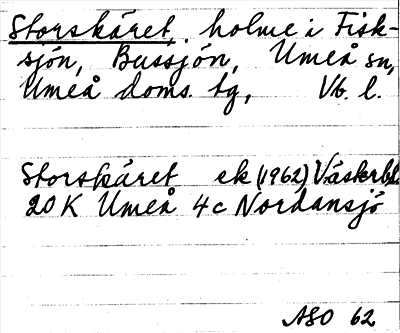 Storskäret, holme i Fisk-
sjön, Bussjön, Umeå sn,
Umeå doms. tg, Vb. l.
Storskäret ek (1962) Västerbl.
20K Umeå 4c Nordansjö
ASO 62